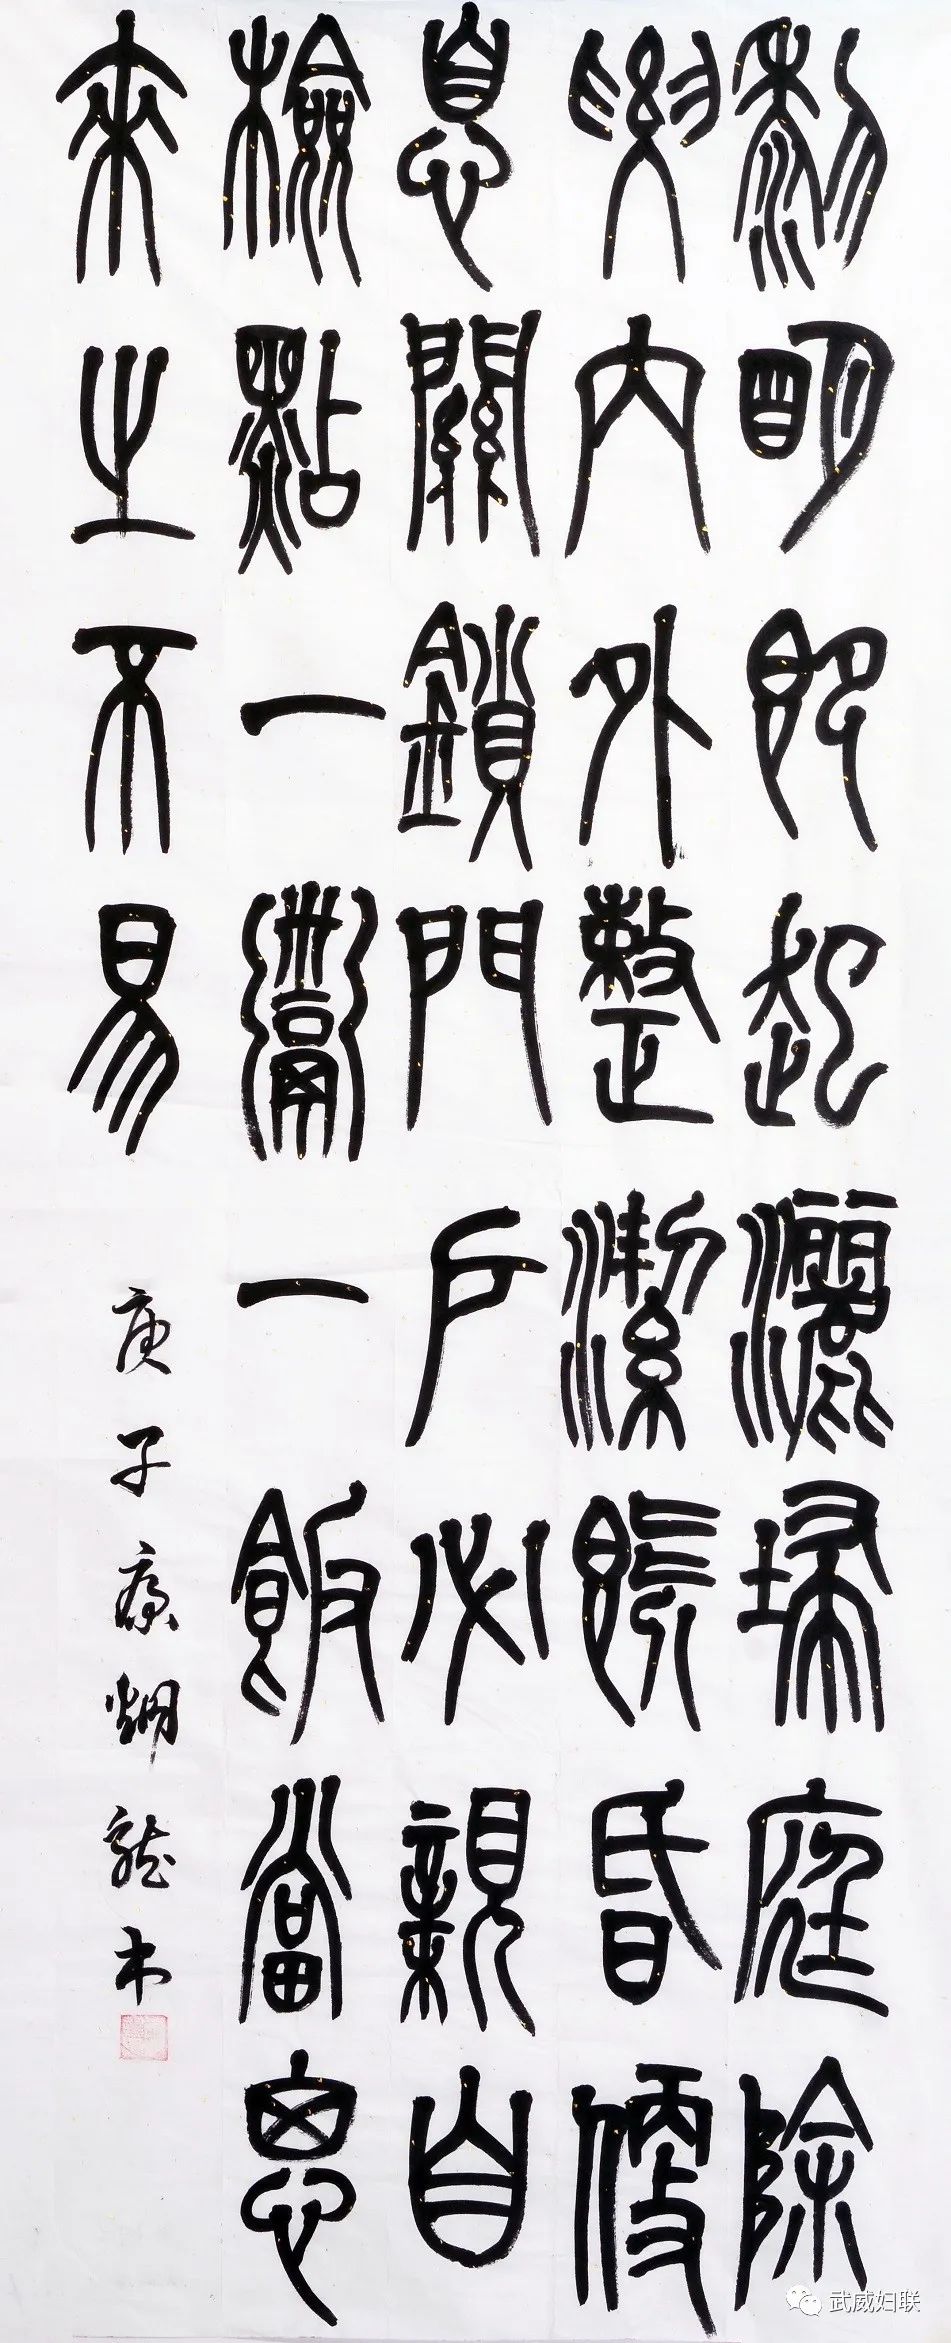 黎明即起灑埽庭除
要內外整潔既昏便
息關鎖門戶必親自
檢點一粥一飯當思
來之不易
庚子
武威妇联